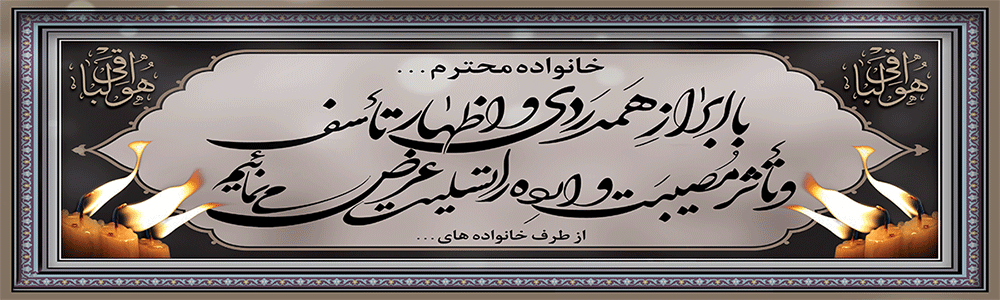 خانواده محترم ...
هوالباقی
هوالباقی
با ابراز همدردی و اظهار تأسف
و تأثر مصیبت وارده را تسلیت عرض می نمائیم
از طرف خانواده های ...